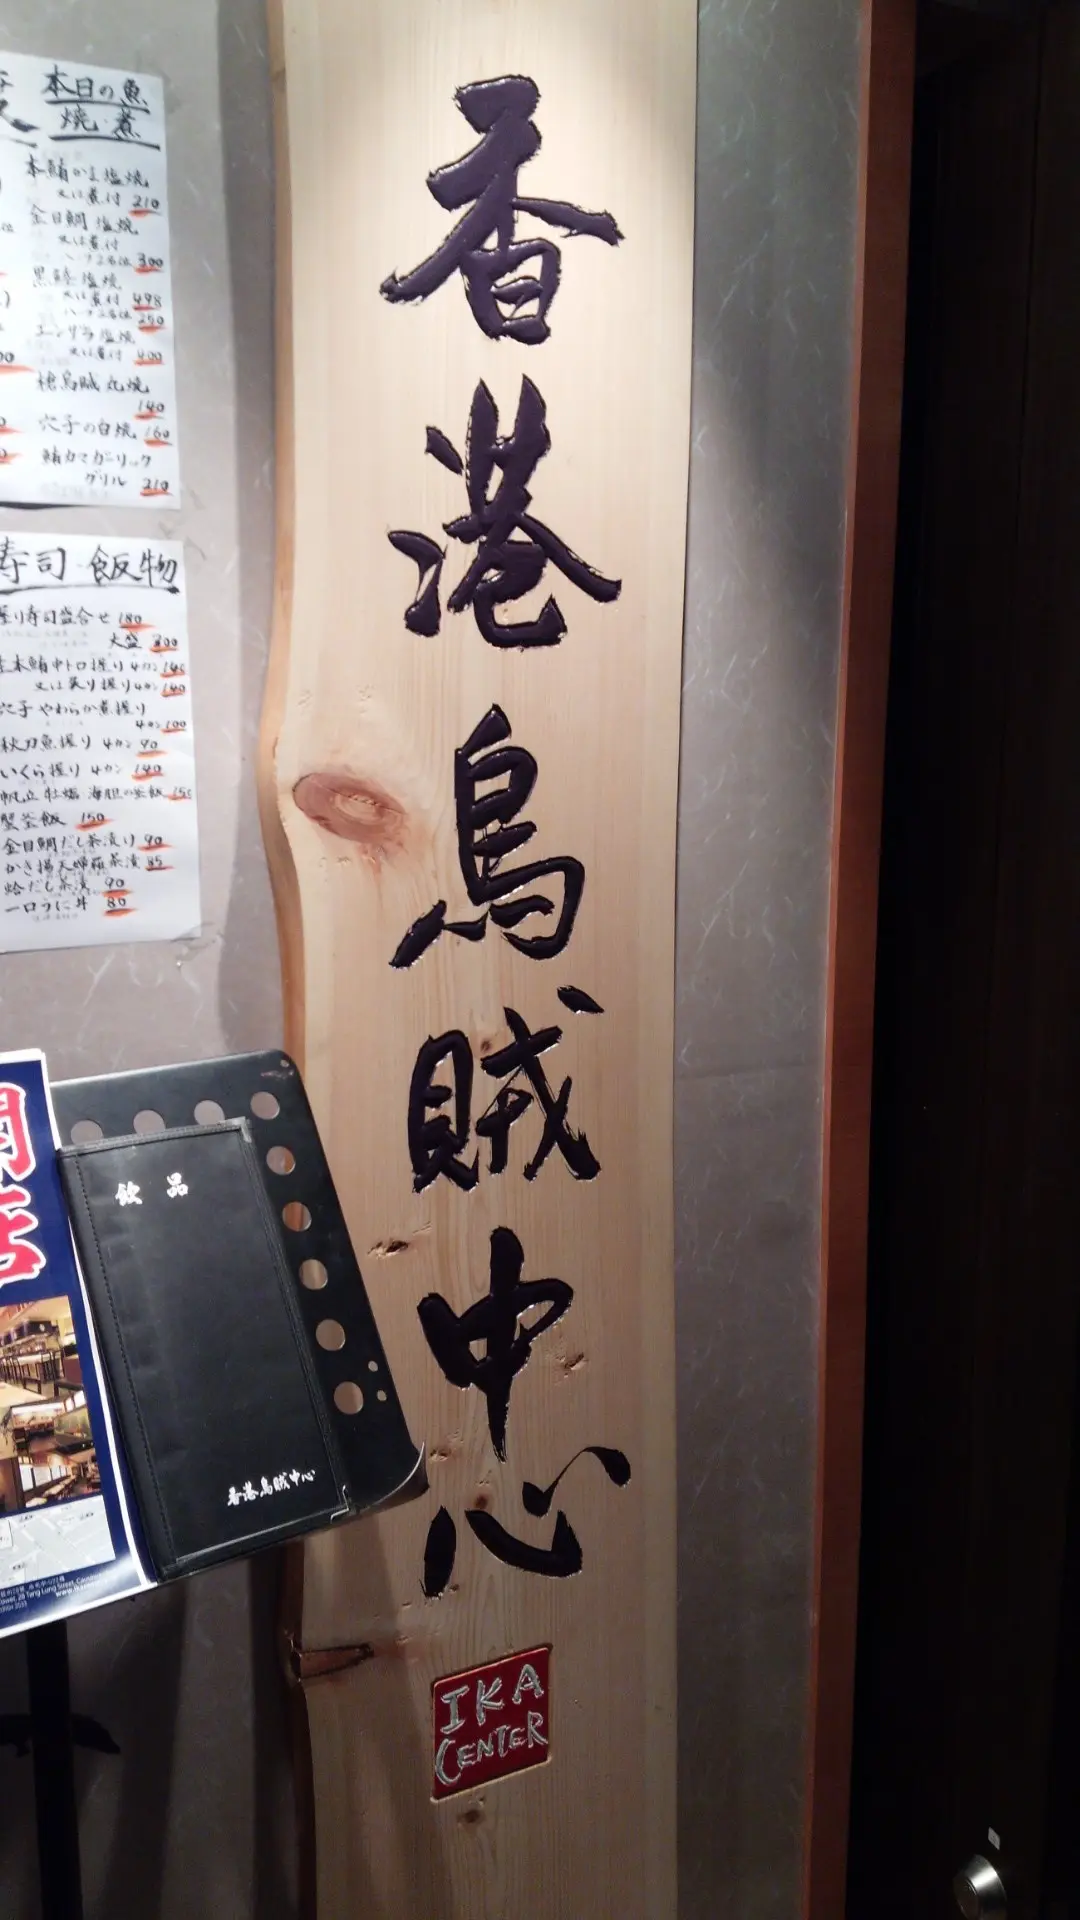 本日の魚
焼・煮
本鮪かま塩焼
又は煮付 210
金目鯛 塩焼
又は煮付
ハーフ2名位 300
塩焼
又は煮付 498
ハーフ2名位 250
塩焼
又は煮付 400
槍烏賊 丸焼
140
穴子の白焼 160
鮪カマガーリック
グリル 210
寿司・飯物
握り寿司盛合せ 180
大盛 300
本鮪中トロ握り 4カン 140
又は炙り握り 4カン 140
穴子 やわらか煮握り
4カン 100
秋刀魚握り 4カン 90
いくら握り 4カン 140
帆立 牡蠣 海胆の釜飯 150
蟹釜飯 150
金目鯛だし茶漬け 90
かき揚天婦羅茶漬 85
蛤だし茶漬 90
一口うに丼 80
香港烏賊中心
IKA
CENTER
飲品
香港烏賊中心